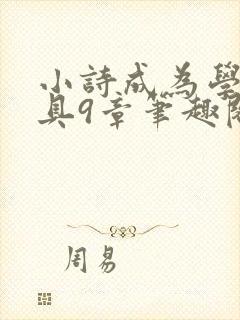 小詩成為學
具9章筆趣閣
周易